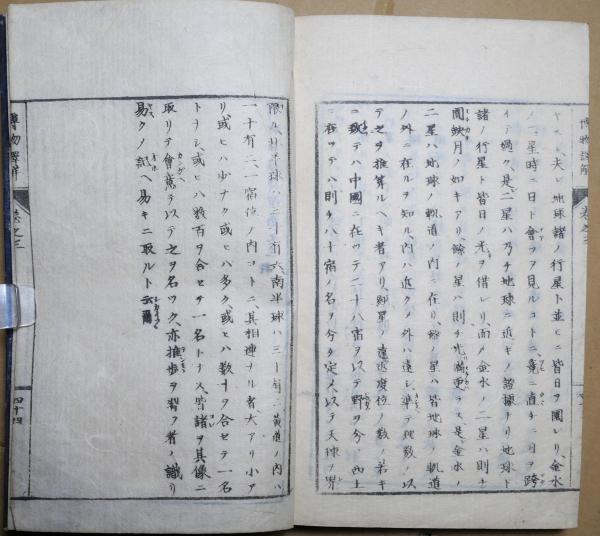 博物譯解
ヤスシ夫レ地球諸ノ行星ト並ヒニ皆日ヲ圜レリ金水
ノ二星時ニ日ト會フヲ見ルコトニ竟ニ直チニ日ヲ跨
イテ過ク是二星ハ乃チ地球ニ近キノ證據ナリ地球ト
諸ノ行星ト皆日ノ光ヲ借レリ而メ金水ノ二星ハ則チ
圓缺月ノ如キアリ餘星ハ則チ光滿テリ是金水ノ
二星ハ地球ノ軌道ノ内ニ在リ餘ノ星ハ皆地球ノ軌道
ノ外ニ在ルヲ知ル内ハ近ク外ハ遠シ準テ理數ノ以
テ之ヲ推算ルヘキ者アリ夥星ノ遠近度位ノ數ノ若キ
ニ致テハ中國ニ在ツテ二十八宿ヲ以テ野ヲ分西土
ニ在ツテハ則チ八十宿ノ名ヲ分チ定メ以テ天球ヲ界
限ル北半球二十有六南半球ハ三十有二黄道ノ内ハ
一十有二一宿位ノ内コトニ其相連ナル者大アリ小ア
リ或ヒハ少ナク或ヒハ多ク或ヒハ數十ヲ合セテ一名
トナシ或ヒハ數百ヲ合セテ一名トナス皆諸ヲ其像ニ
取リテ會意ヲ以テ之ヲ名ツク亦推歩ヲ習フ者ノ識リ
易ク記ヘ易キニ取ルト云爾
博物譯解
卷之三
四十四